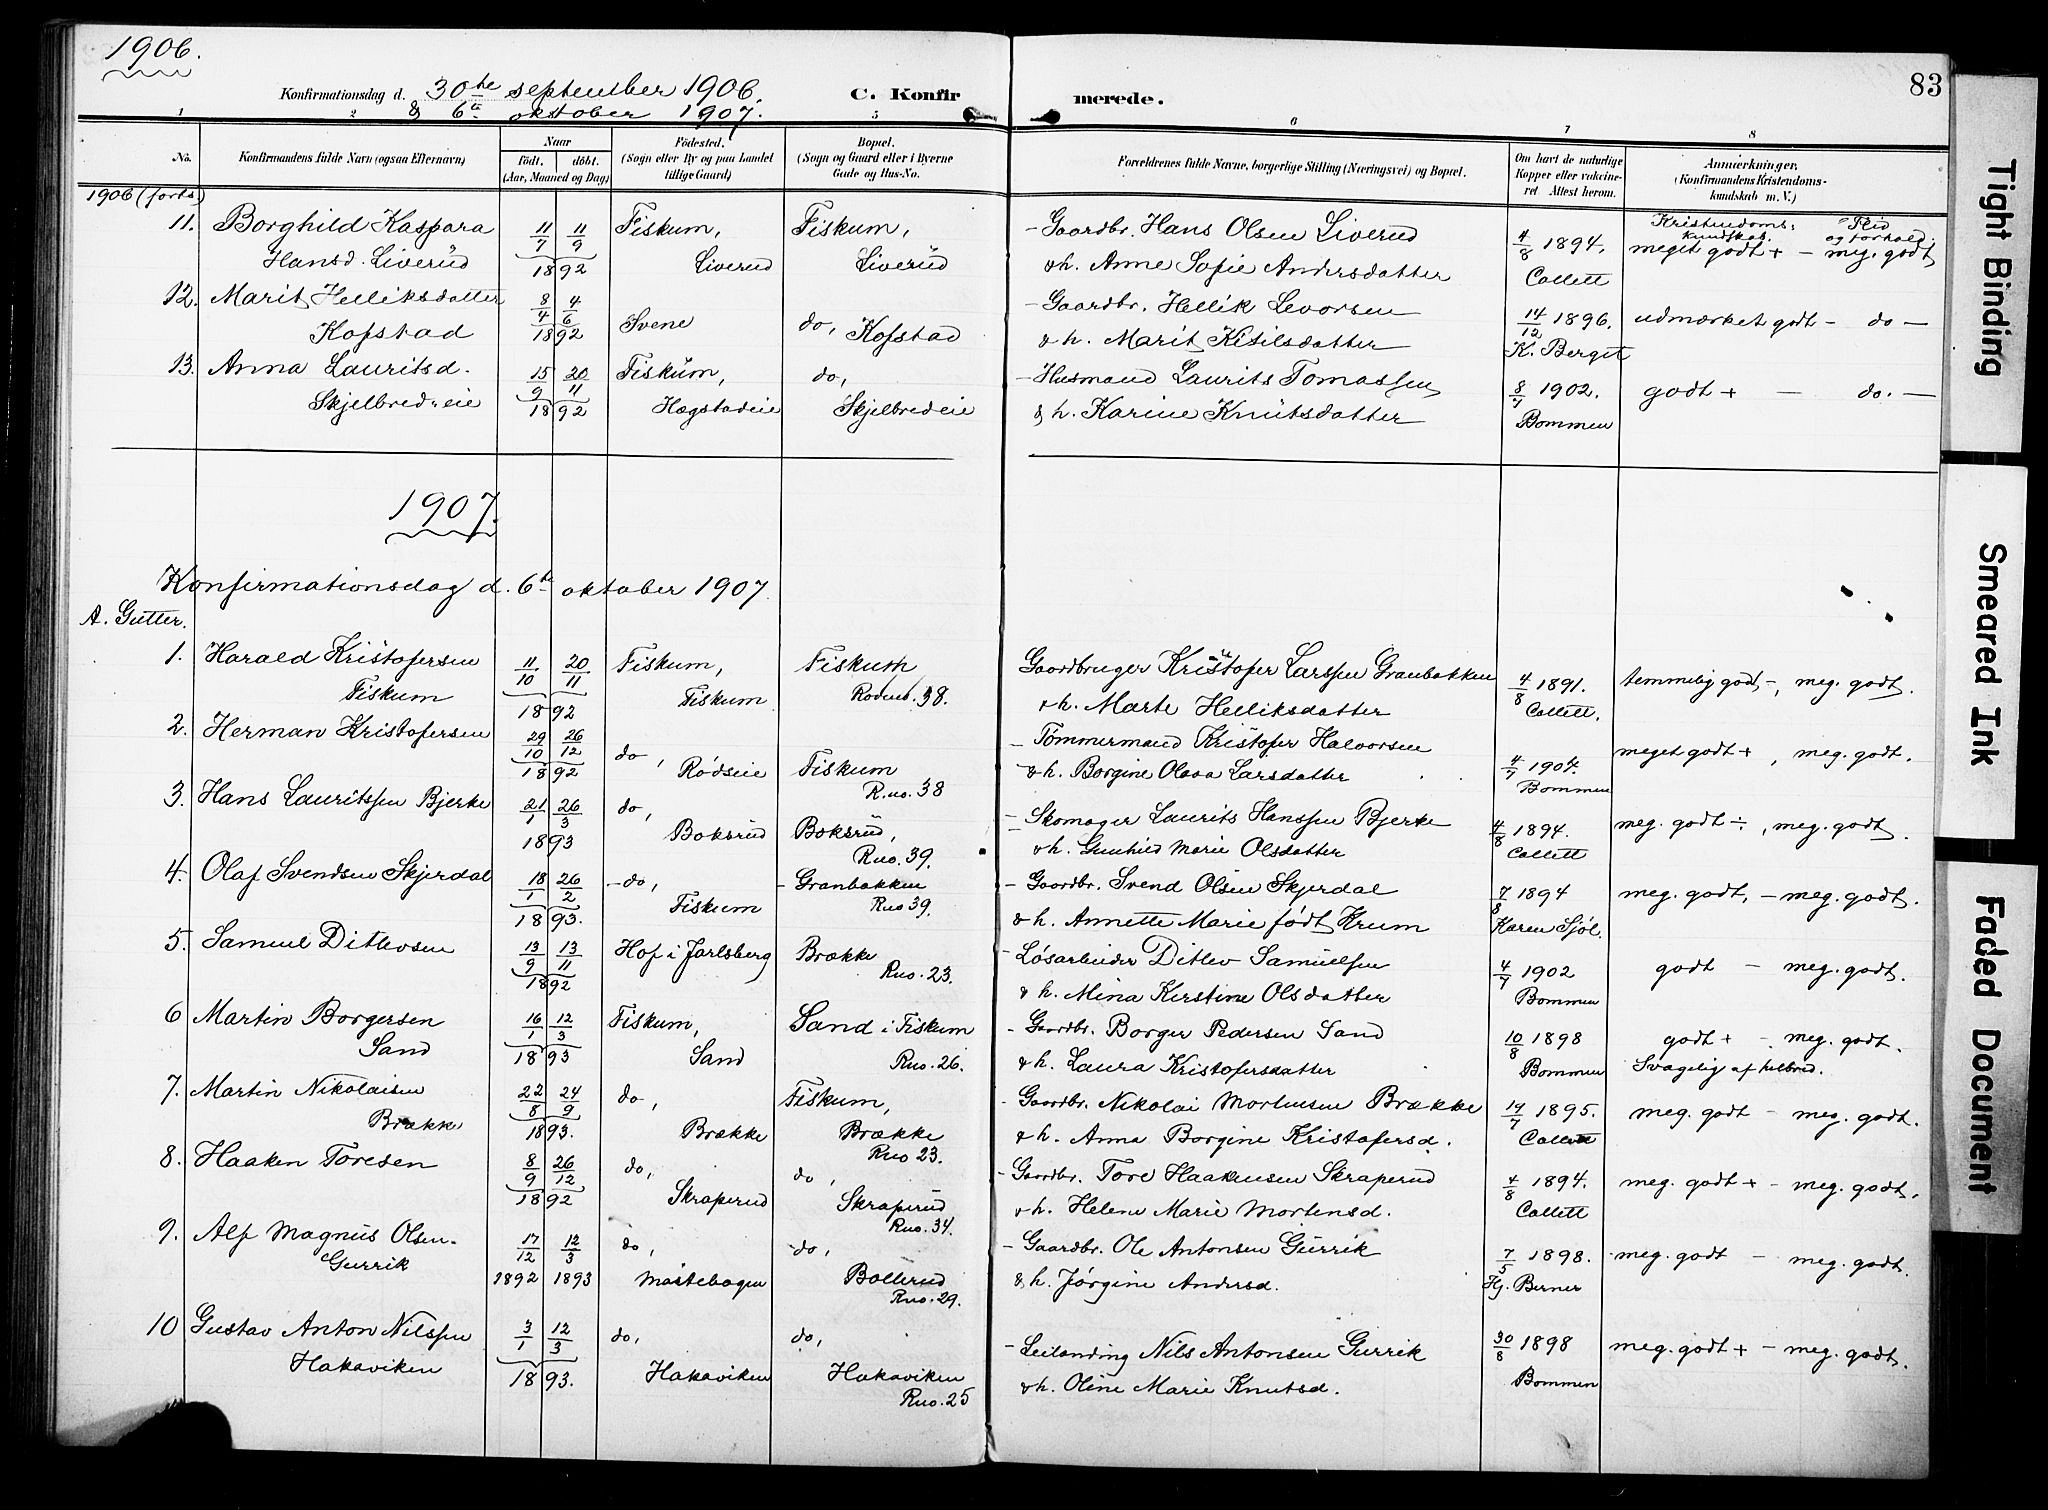 1906.
83
Konfirmationsdag d. 30te september 1906. C. Konfirmerede.
& 6te oktober 1907.
1 2 5 6 7 8
No. Konfirmandens fulde Navn (ogsaa Efternavn) Naar født. døbt. (Aar, Maaned og Dag) Fødested. (Sogn eller By og paa Landet tillige Gaard) Bopæl. (Sogn og Gaard eller i Byerne Gade og Hus-No. Forældrenes fulde Navne, borgerlige Stilling (Næringsvei) og Bopæl. Om havt de naturlige Kopper eller vakcineret Attest herom. Anmærkninger. (Konfirmandens Kristendomskundskab m. V.)
1906 (forts)
Kristendomskundskab. Flid og forhold.
11. Borghild Kaspara 11/7 11/9 Fiskum, Fiskum, - Gaardbr. Hans Olsen Liverud 4/8 1894. meget godt + - meg. godt
Hansd. Liverud 1892 Liverud Liverud & h. Anne Sofie Andersdatter Collett
12. Marit Helliksdatter 8/4 4/6 Svene do, Kopstad - Gaardbr. Hellik Levorsen 14/12 1896. udmærket godt - do -
Kopstad 1892 & h. Marit Kitilsdatter K. Berget
13. Anna Lauritsd. 15/9 20/11 Fiskum, do, - Husmand Laurits Tomassen 8/7 1902. godt + - do. -
Skjelbred-eie 1892 Hægstadeie Skjelbredeie & h. Karine Knutsdatter Bommen
1907.
Konfirmationsdag d. 6te oktober 1907.
A. Gutter.
1. Harald Kristofersen 11/10 20/11 Fiskum, Fiskum Gaardbruger Kristofer Larssen Granbakken 4/8 1891. temmelig godt, -, meg. godt.
Fiskum 1892 Fiskum Rodens. 38. & h. Marte Helliksdatter Collett.
2. Herman Kristofersen 29/10 26/12 do, Fiskum - Tømmermand Kristofer Halvorsen 4/7 1904. meget godt +, meg. godt.
1892 Rødseie R.no. 38 & h. Borgine Olava Larsdatter Bommen
3. Hans Lauritssen Bjerke 21/1 26/3 do, Boksrud, - Skomager Laurits Hanssen Bjerke 4/8 1894. meg. godt ÷, meg. godt.
1893 Boksrud Rno. 39. & h. Gunhild Marie Olsdatter Collett
4. Olaf Svendsen Skjerdal 18/1 26/2 - do, - Granbakken - Gaardbr. Svend Olsen Skjerdal 7/8 1894 meg. godt, - meg. godt.
1893. Fiskum Rno 39. & h. Annette Marie født Krum Karen Sjøl.
5. Samuel Ditlevsen 13/9 13/11 Hof i Jarlsberg Brække - Løsarbeider Ditlev Samuelsen 4/7 1902 godt - meg. godt.
1892 Rno. 23. & h. Mina Kerstine Olsdatter Bommen
6 Martin Borgersen 16/1 12/3 Fiskum, Sand i Fiskum - Gaardbr. Borger Pedersen Sand 10/8 1898 godt + - meg. godt.
Sand 1893 Sand Rno. 26. & h. Laura Kristofersdatter Bommen Svagelig af helbred.
7. Martin Nikolaisen 22/8 24/9 do, Fiskum, - Gaardbr. Nikolai Mortensen Brække 14/7 1895. meg. godt - meg. godt.
Brække 1893. Brække Brække Rno 23. & h. Anna Borgine Kristofersd. Collett
8. Haaken Toresen 8/9 26/12 do, do, - Gaardbr. Tore Haakensen Skraperud 4/8 1894. meg. godt + - meg. godt.
1892 Skraperud Skraperud Rno. 34. & h. Helene Marie Mortensd. Collett
9. Alf Magnus Olsen- 17/12 12/3 do, do, - Gaardbr. Ole Antonsen Gurrik 7/5 1898. - meg. godt - meg. godt.
Gurrik 1892 1893 Mastebogen Bollerud Rno. 29. & h. Jørgine Andersd. Hj. Berner
10 Gustav Anton Nilssen 3/1 12/3 do, do, - Leilænding Nils Antonsen Gurrik 30/8 1898 meg. godt + - meg. godt.
Hakaviken 1893. Hakaviken Hakaviken Rno. 25 & h. Oline Marie Knutsd. Bommen
Tight Binding
Smeared Ink
Faded Document